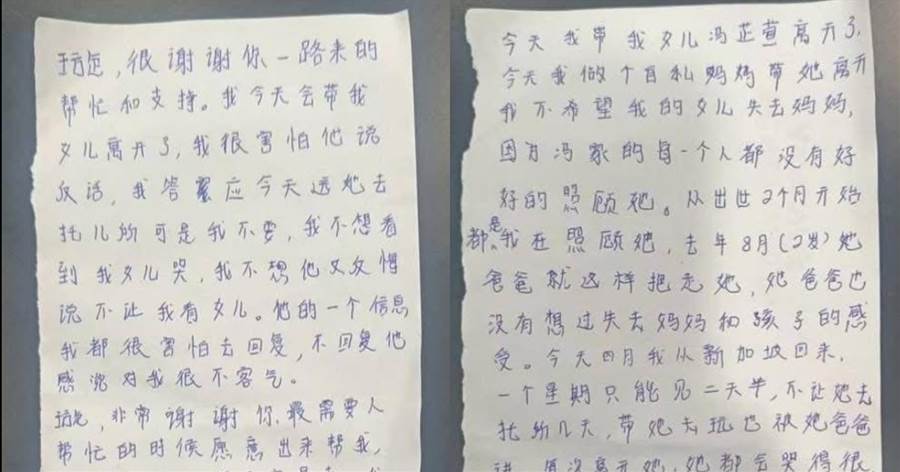 很谢谢你一路来的
帮忙和支持。我今天会带我
女儿离开了,我很害怕他说
反话,我答应今天送她去
托儿所可是我不要,我不想看
到我女儿哭,我不想他又反悔
说不让我看女儿。他的一个信息
我都很害怕去回复,不回复他
威说对我很不客气。
非常谢谢你,最需要人
帮忙的时候愿意出来帮我,
今天我带我女儿冯芷萱离开了,
今天我做个自私妈妈带她离开
我不希望我的女儿失去妈妈,
因为冯家的每一个人都没有好
好的照顾她。从出世2个月开始
都是我在照顾她,去年8月(2岁)她
爸爸就这样把走她,她爸爸也
没有想过失去妈妈和孩子的感
受。今天四月我从新加坡回来,
一个星期只能见二天半,不让她去
托幼几天,带她去玩也被她爸爸
每次离开她,她都会哭得很